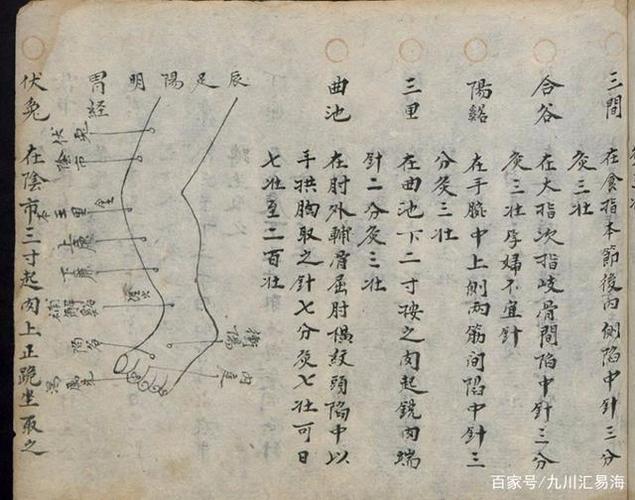 三間 在食指本節後內側陷中針三分
灸三壯
合谷 在大指次指岐骨間陷中針三分
灸三壯孕婦不宜針
陽谿 在手腕中上側兩筋间陷中針三
分灸三壯
三里 在曲池下二寸按之肉起銳肉端
針二分灸三壯
曲池 在肘外輔骨屈肘橫紋頭陷中以
手拱胸取之針七分灸七壯可日
七壯至二百壯
辰足陽明胃经
伏兔
陰市
三里
上廉
下廉
解谿
陷谷
衝陽
內庭
伏兔 在陰市上三寸起肉上正跪坐取之
百家号/九川汇易海